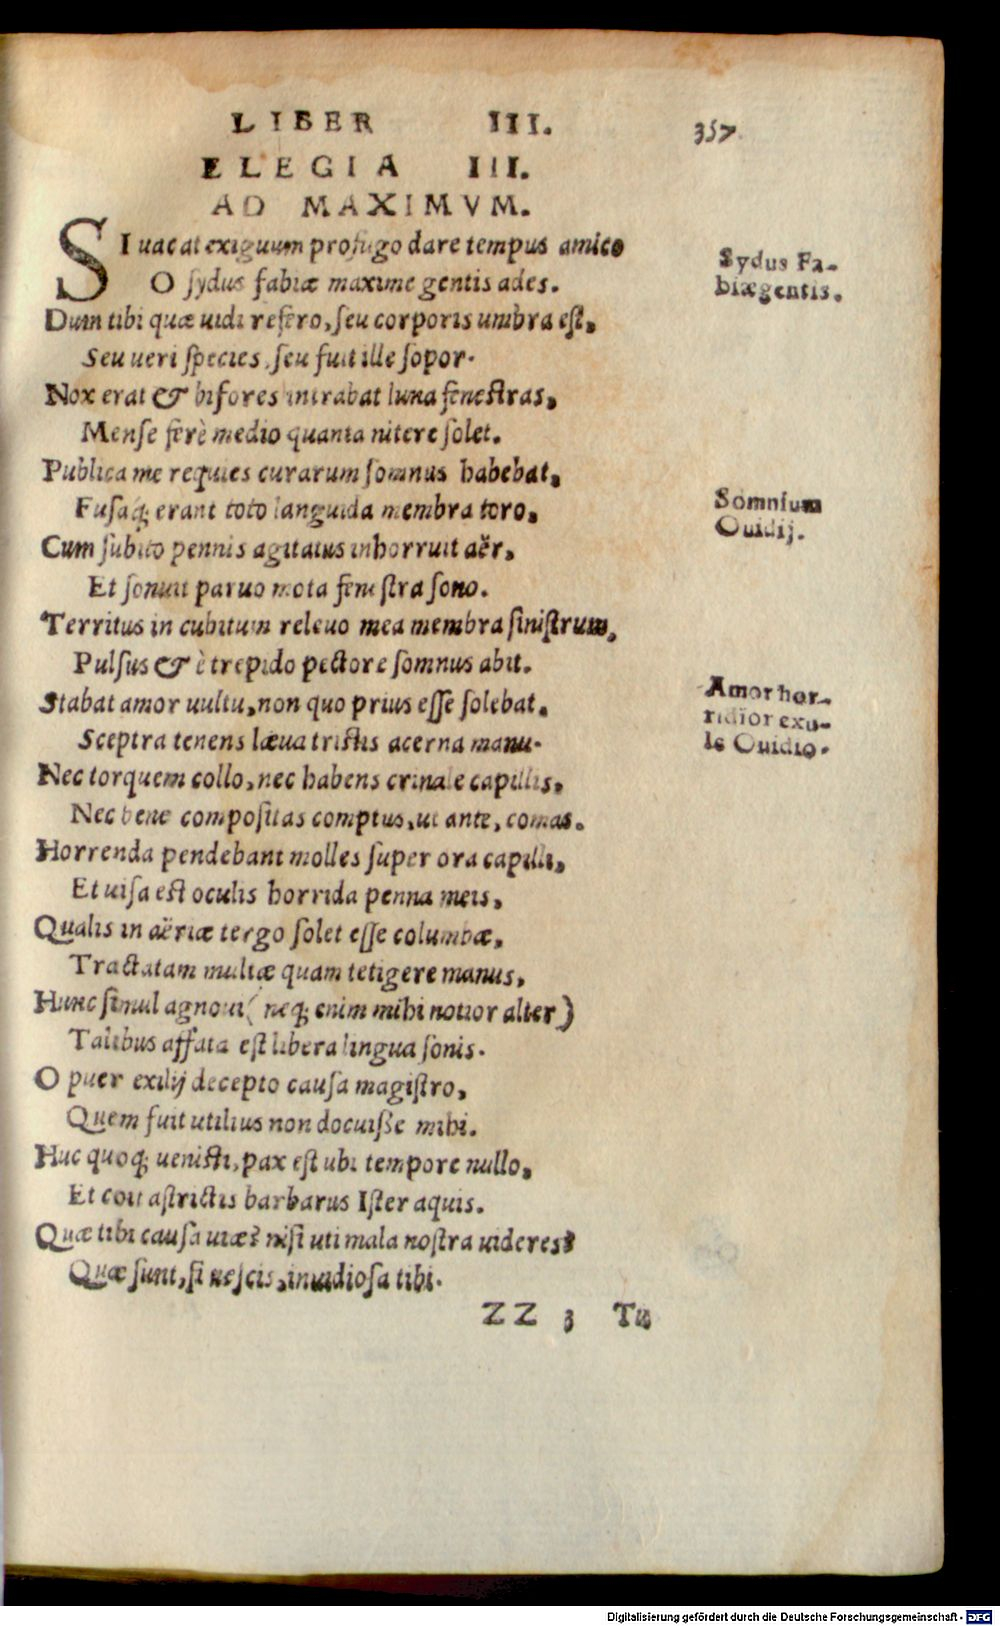 LIBER III. 357
ELEGIA III.
AD MAXIMVM.
SI uacat exiguum profugo dare tempus amico
O sydus fabiæ maxime gentis ades.
Sydus Fa-
biægentis.
Dum tibi quæ uidi refero, seu corporis umbra est,
Seu ueri species, seu fuit ille sopor.
Nox erat & bifores intrabat luna fenestras,
Mense ferè medio quanta nitere solet.
Publica me requies curarum somnus habebat,
Fusaq; erant toto languida membra toro,
Somnium
Ouidij.
Cum subito pennis agitatus inhorruit aër,
Et sonuit paruo mota fenestra sono.
Territus in cubitum releuo mea membra sinistrum,
Pulsus & è trepido pectore somnus abit.
Stabat amor uultu, non quo prius esse solebat.
Amor hor-
ridior exu-
le Ouidio.
Sceptra tenens læua tristis acerna manu.
Nec torquem collo, nec habens crinale capillis,
Nec bene compositas comptus, ut ante, comas.
Horrenda pendebant molles super ora capilli,
Et uisa est oculis horrida penna meis,
Qualis in aëriæ tergo solet esse columbæ,
Tractatam multæ quam tetigere manus,
Hunc simul agnoui (neq; enim mihi notior alter)
Talibus affata est libera lingua sonis.
O puer exilij decepto causa magistro,
Quem fuit utilius non docuisse mihi.
Huc quoq; uenisti, pax est ubi tempore nullo,
Et coit astrictis barbarus Ister aquis.
Quæ tibi causa uiæ? nisi uti mala nostra uideres?
Quæ sunt, si nescis, inuidiosa tibi.
ZZ 3 Tu
Digitalisierung gefördert durch die Deutsche Forschungsgemeinschaft - DFG